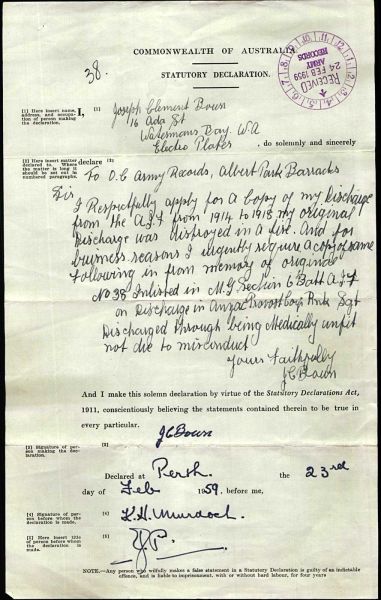 COMMONWEALTH OF AUSTRALIA
RECEIVED
24 FEB 1959
ARMY
RECORDS
38.
STATUTORY DECLARATION.
[1] Here insert name, address, and occupation of person making the declaration.
I, [1]
Joseph Clement Bown
16 Ada St
Watermans Bay. W.A
Electro Plater
, do solemnly and sincerely
[2] Here insert matter declared to. Where the matter is long it should be set out in numbered paragraphs.
declare [2]
To O.C Army Records, Albert Park Barracks
Sir
I Respectfully apply for a Copy of my Discharge
from the A.I.F from 1914 to 1918 my original
Discharge was distroyed in a fire. And for
business reasons I urgently require a copy of same
following in from memory of original
No 38 Inlisted in M.G Section 6 Batt A.I.F
on Discharge in Anzac Provost Corps Rank Sgt
Discharged through being Medically unfit
not due to misconduct
Yours Faithfully
JC Bown
And I make this solemn declaration by virtue of the Statutory Declarations Act,
1911, conscientiously believing the statements contained therein to be true in
every particular.
[3] Signature of person making the declaration.
[3]
JC Bown
Declared at Perth. the 23rd
day of Feb 1959. before me,
[4] Signature of person before whom the declaration is made.
[4]
K.H. Murdoch.
[5] Here insert title of person before whom the declaration is made.
[5]
J.P.
NOTE.—Any person who wilfully makes a false statement in a Statutory Declaration is guilty of an indictable
offence, and is liable to imprisonment, with or without hard labour, for four years